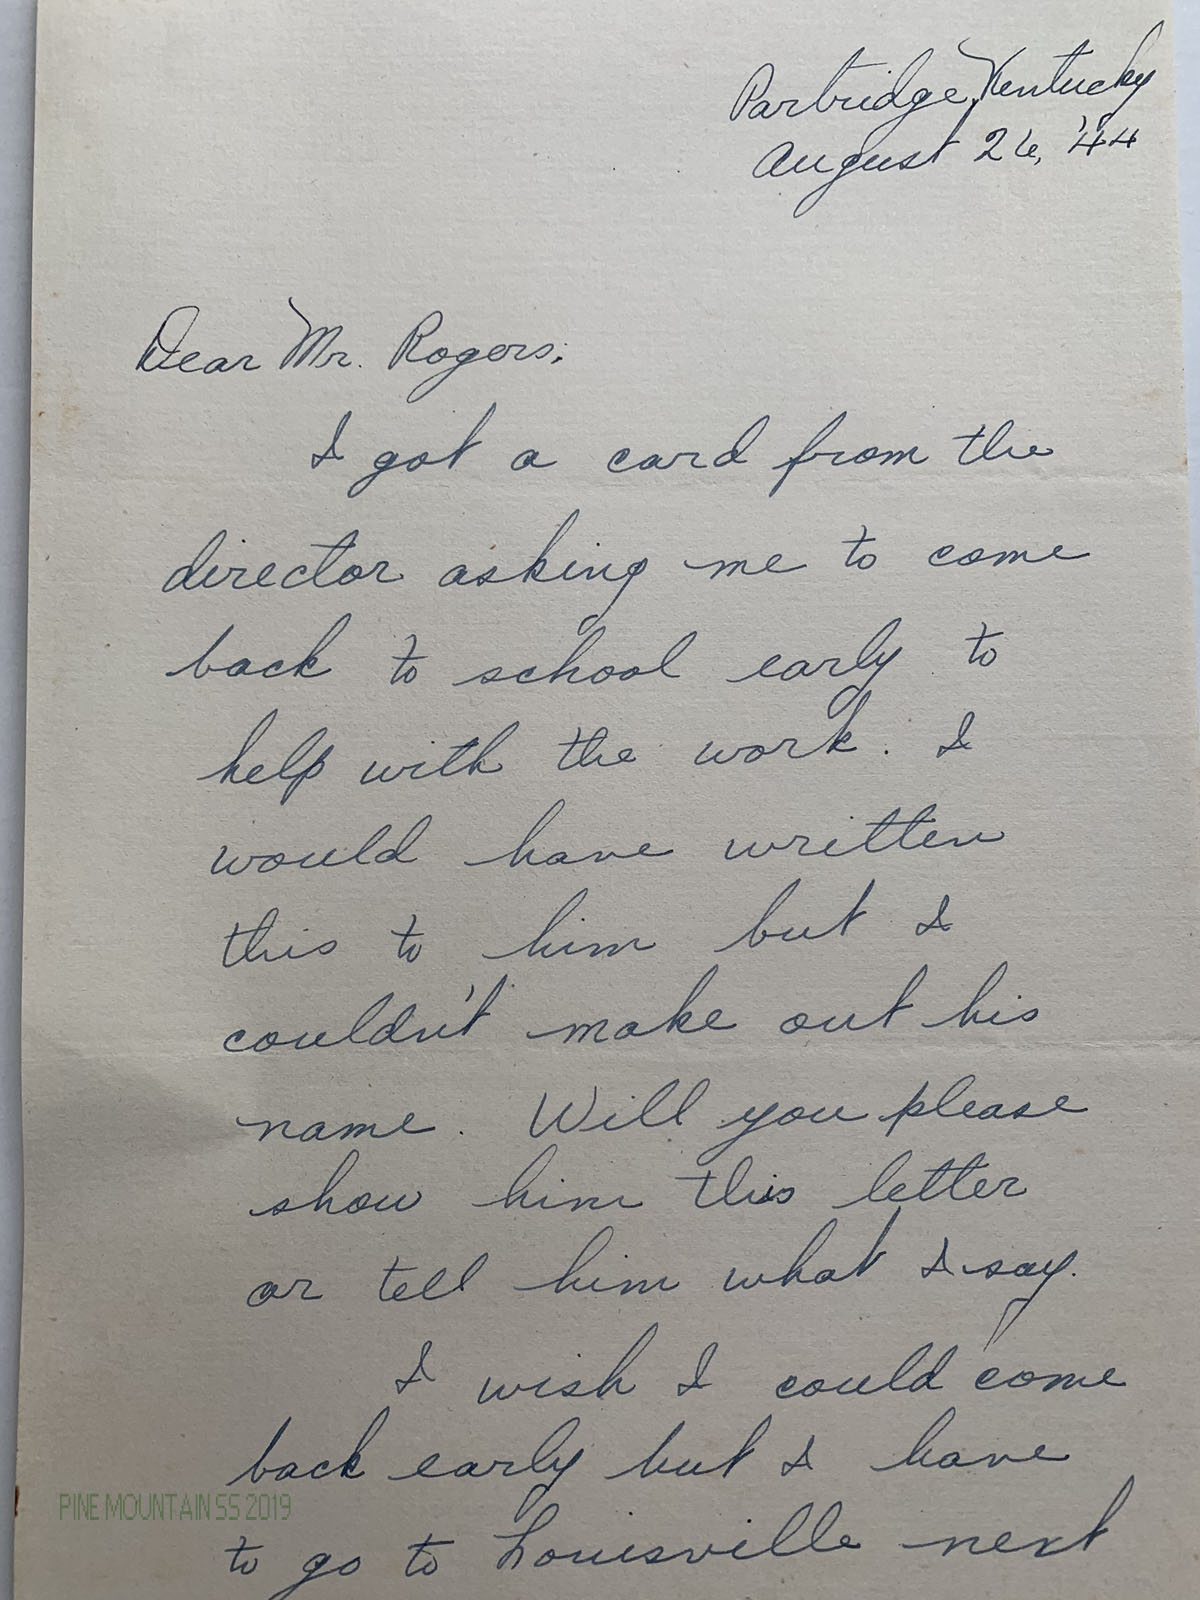 Partridge, Kentucky
August 26, '44
Dear Mr. Rogers,
I got a card from the
director asking me to come
back to school early to
help with the work. I
would have written
this to him but I
couldn't make out his
name. Will you please
show him this letter
or tell him what I say.
I wish I could come
back early but I have
to go to Louisville next
PINE MOUNTAIN SS 2019